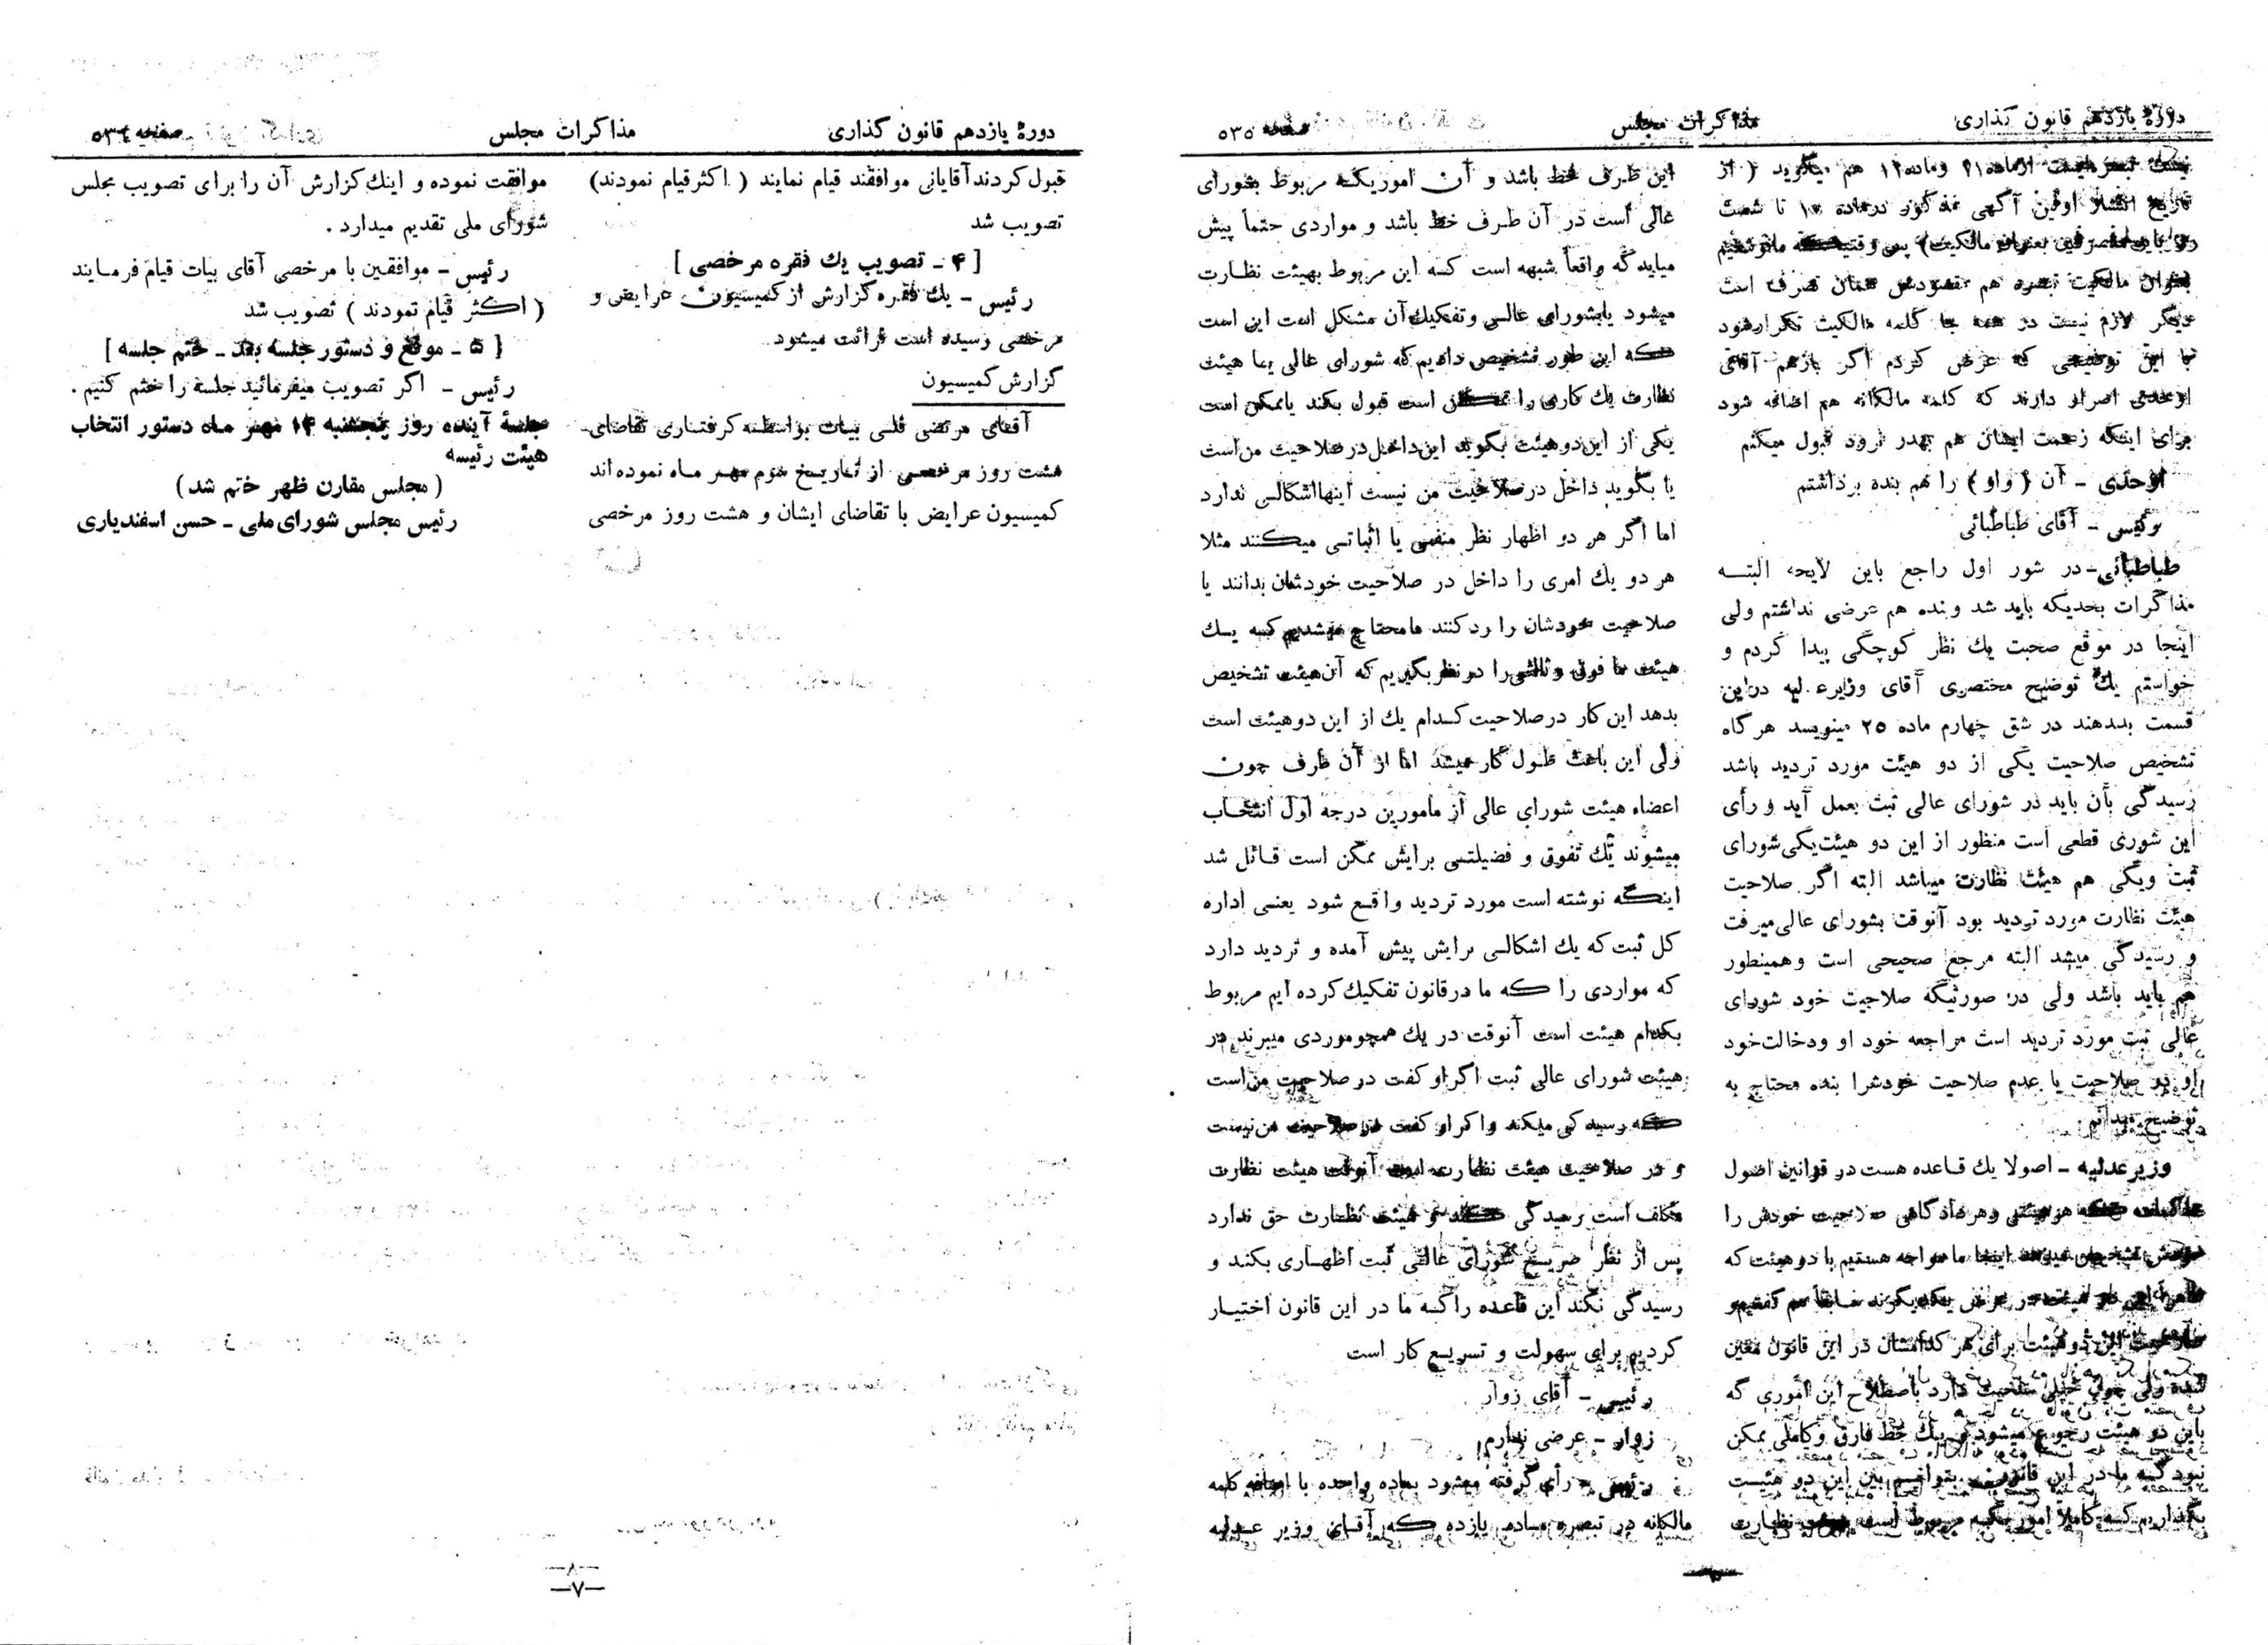 دورهٔ یازدهم قانون گذاری
مذاکرات مجلس
صفحه ۵۳۵
هم میگوید ( از
تاریخ انتشار اولین آگهی مذکور در ماده ۱۰ تا شصت
بعنوان مالکیت) پس وقتیکه ما نوشتیم
بعنوان مالکیت تبصره هم مقصودش همان تصرف است
دیگر لازم نیست در همه جا کلمه مالکیت تکرار شود
با این توضیحی که عرض کردم اگر بازهم آقای
اوحدی اصرار دارند که کلمه مالکانه هم اضافه شود
برای اینکه زحمت ایشان هم بهدر نرود قبول میکنم
اوحدی ـ آن ( واو ) را هم بنده برداشتم
رئیس ـ آقای طباطبائی
طباطبائی ـ در شور اول راجع باین لایحه البته
مذاکرات بحدیکه باید شد و بنده هم عرضی نداشتم ولی
اینجا در موقع صحبت یك نظر کوچکی پیدا کردم و
خواستم یك توضیح مختصری آقای وزیر عدلیه در این
قسمت بدهند در شق چهارم ماده ۲۵ مینویسد هر گاه
تشخیص صلاحیت یکی از دو هیئت مورد تردید باشد
رسیدگی بآن باید در شورای عالی ثبت بعمل آید و رأی
این شوری قطعی است منظور از این دو هیئت یکی شورای
ثبت ویکی هم هیئت نظارت میباشد البته اگر صلاحیت
هیئت نظارت مورد تردید بود آنوقت بشورای عالی میرفت
و رسیدگی میشد البته مرجع صحیحی است وهمینطور
هم باید باشد ولی در صورتیکه صلاحیت خود شورای
عالی ثبت مورد تردید است مراجعه خود او ودخالت خود
او در صلاحیت یا عدم صلاحیت خودش را بنده محتاج به
توضیح میدانم
وزیر عدلیه ـ اصولا یك قاعده هست در قوانین اصول
محاکمات که هر هیئتی و هر دادگاهی صلاحیت خودش را
خودش تشخیص میدهد اینجا ما مواجه هستیم با دو هیئت که
این دو هیئت در عرض یکدیگرند سابقاً هم گفتیم و
صلاحیت این دو هیئت برای هر کدامشان در این قانون معین
شده ولی چون خیلی دارد باصطلاح این اموری که
باین دو هیئت رجوع میشود یك خط فارق و کاملی ممکن
نبود که ما در این قانون بتوانیم بین این دو هیئت
بگذاریم که کاملا اموریکه مربوط است بهیئت نظارت
این طرف خط باشد و آن اموریکه مربوط بشورای
عالی است در آن طرف خط باشد و مواردی حتماً پیش
میاید که واقعاً شبهه است که این مربوط بهیئت نظارت
میشود یا بشورای عالی و تفکیك آن مشکل است این است
که این طور تشخیص دادیم که شورای عالی یا هیئت
نظارت یك کاری را ممکن است قبول بکند یا ممکن است
یکی از این دو هیئت بگوید این داخل در صلاحیت من است
یا بگوید داخل در صلاحیت من نیست اینها اشکالی ندارد
اما اگر هر دو اظهار نظر منفی یا اثباتی میکنند مثلا
هر دو یك امری را داخل در صلاحیت خودشان بدانند یا
صلاحیت خودشان را رد کنند ما محتاج میشدیم که یك
هیئت ما فوق و ثالثی را در نظر بگیریم که آن هیئت تشخیص
بدهد این کار در صلاحیت کدام یك از این دو هیئت است
ولی این باعث طول کار میشد اما از آن طرف چون
اعضاء هیئت شورای عالی از مامورین درجه اول انتخاب
میشوند یك تفوق و فضیلتی برایش ممکن است قائل شد
اینکه نوشته است مورد تردید واقع شود یعنی اداره
کل ثبت که یك اشکالی برایش پیش آمده و تردید دارد
که مواردی را که ما در قانون تفکیك کرده ایم مربوط
بکدام هیئت است آنوقت در یك همچو موردی میبرند در
هیئت شورای عالی ثبت اگر او گفت در صلاحیت من است
که رسیدگی میکند و اگر او گفت در صلاحیت من نیست
و در صلاحیت هیئت نظارت است آنوقت هیئت نظارت
مکلف است رسیدگی کند و هیئت نظارت حق ندارد
پس از نظر صریح شورای عالی ثبت اظهاری بکند و
رسیدگی نکند این قاعده را که ما در این قانون اختیار
کردیم برای سهولت و تسریع کار است
رئیس ـ آقای زوار
زوار ـ عرضی ندارم
رئیس ـ رأی گرفته میشود بماده واحده با اضافه کلمه
مالکانه در تبصره ماده یازده که آقای وزیر عدلیه
دورهٔ یازدهم قانون گذاری
مذاکرات مجلس
صفحه ۵۳۶
قبول کردند آقایانی موافقند قیام نمایند ( اکثر قیام نمودند)
تصویب شد
[ ۴ ـ تصویب یك فقره مرخصی ]
رئیس ـ یك فقره گزارش از کمیسیون عرایض و
مرخصی رسیده است قرائت میشود.
گزارش کمیسیون
آقای مرتضی قلی بیات بواسطه گرفتاری تقاضای
هشت روز مرخصی از تاریخ سوم مهر ماه نموده اند
کمیسیون عرایض با تقاضای ایشان و هشت روز مرخصی
موافقت نموده و اینك گزارش آن را برای تصویب مجلس
شورای ملی تقدیم میدارد .
رئیس ـ موافقین با مرخصی آقای بیات قیام فرمایند
( اکثر قیام نمودند ) تصویب شد
[ ۵ ـ موقع و دستور جلسه بعد ـ ختم جلسه ]
رئیس ـ اگر تصویب میفرمائید جلسه را ختم کنیم .
جلسهٔ آینده روز پنجشنبه ۱۴ مهر ماه دستور انتخاب
هیئت رئیسه
( مجلس مقارن ظهر ختم شد )
رئیس مجلس شورای ملی ـ حسن اسفندیاری
—۸—
—۷—